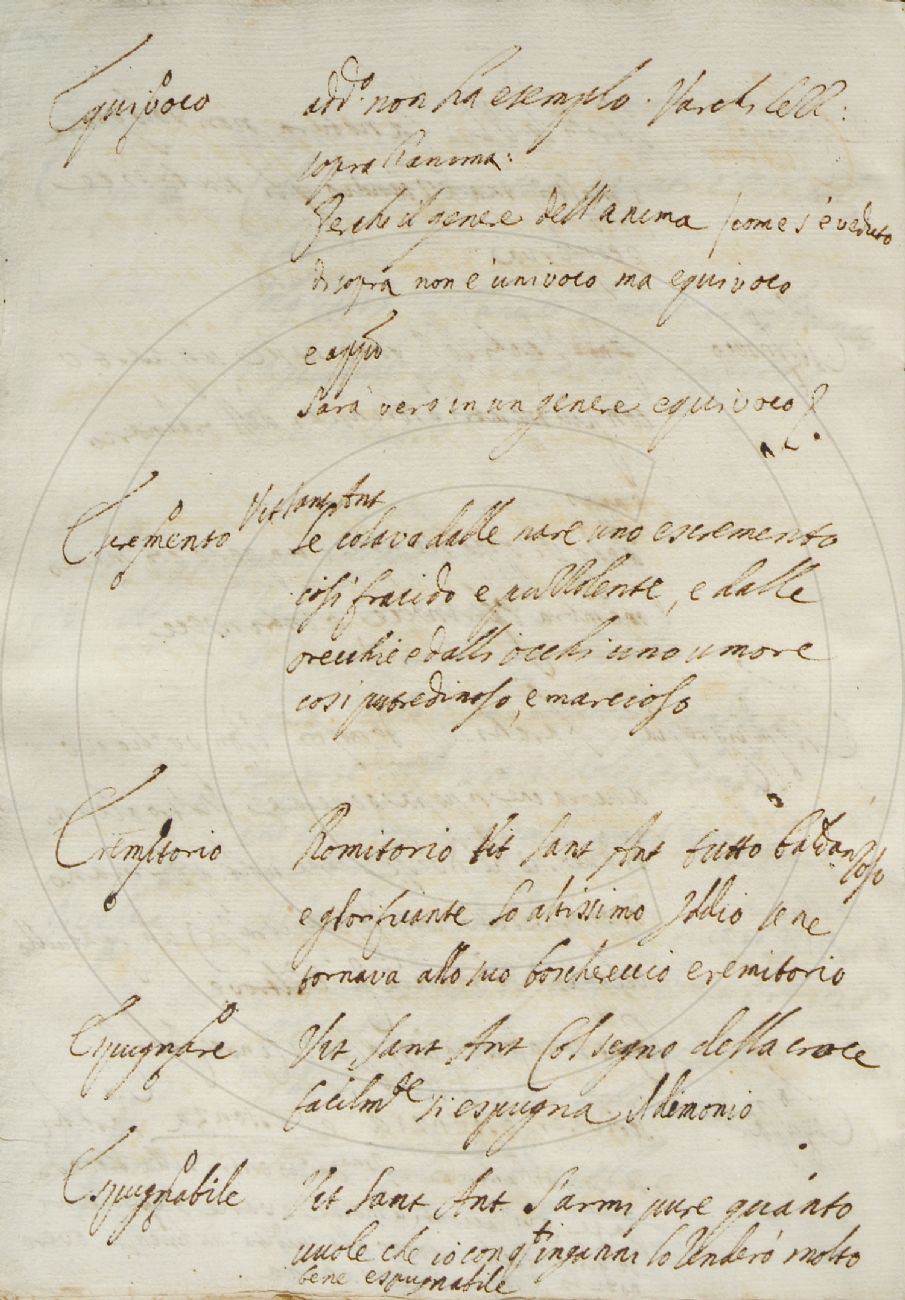 Equivoco add.º non ha esemplo. Varchi lell:
sopra l'anima:
Perche il genere dell'anima, come s'è veduto
di sopra non è univoco ma equivoco
e app.º
Sarà vero in un genere equivoco?
Vit Sant Ant
Escremento Le colava dalle nare uno escremento
così fracido e puttolente, e dalle
orecchie e dalli occhi uno umore
così putredinoso, e marcioso
Eremitorio Romitorio Vit Sant Ant tutto baldanzoso
e glorificante lo altissimo Iddio se ne
tornava allo suo boschereccio eremitorio
Espugnare Vit Sant Ant Col segno della croce
facilm.te si espugna il dimonio
Espugnabile Vit Sant Ant S'armi pure quanto
vuole che io con q.ti inganni lo renderò molto
bene espugnabile